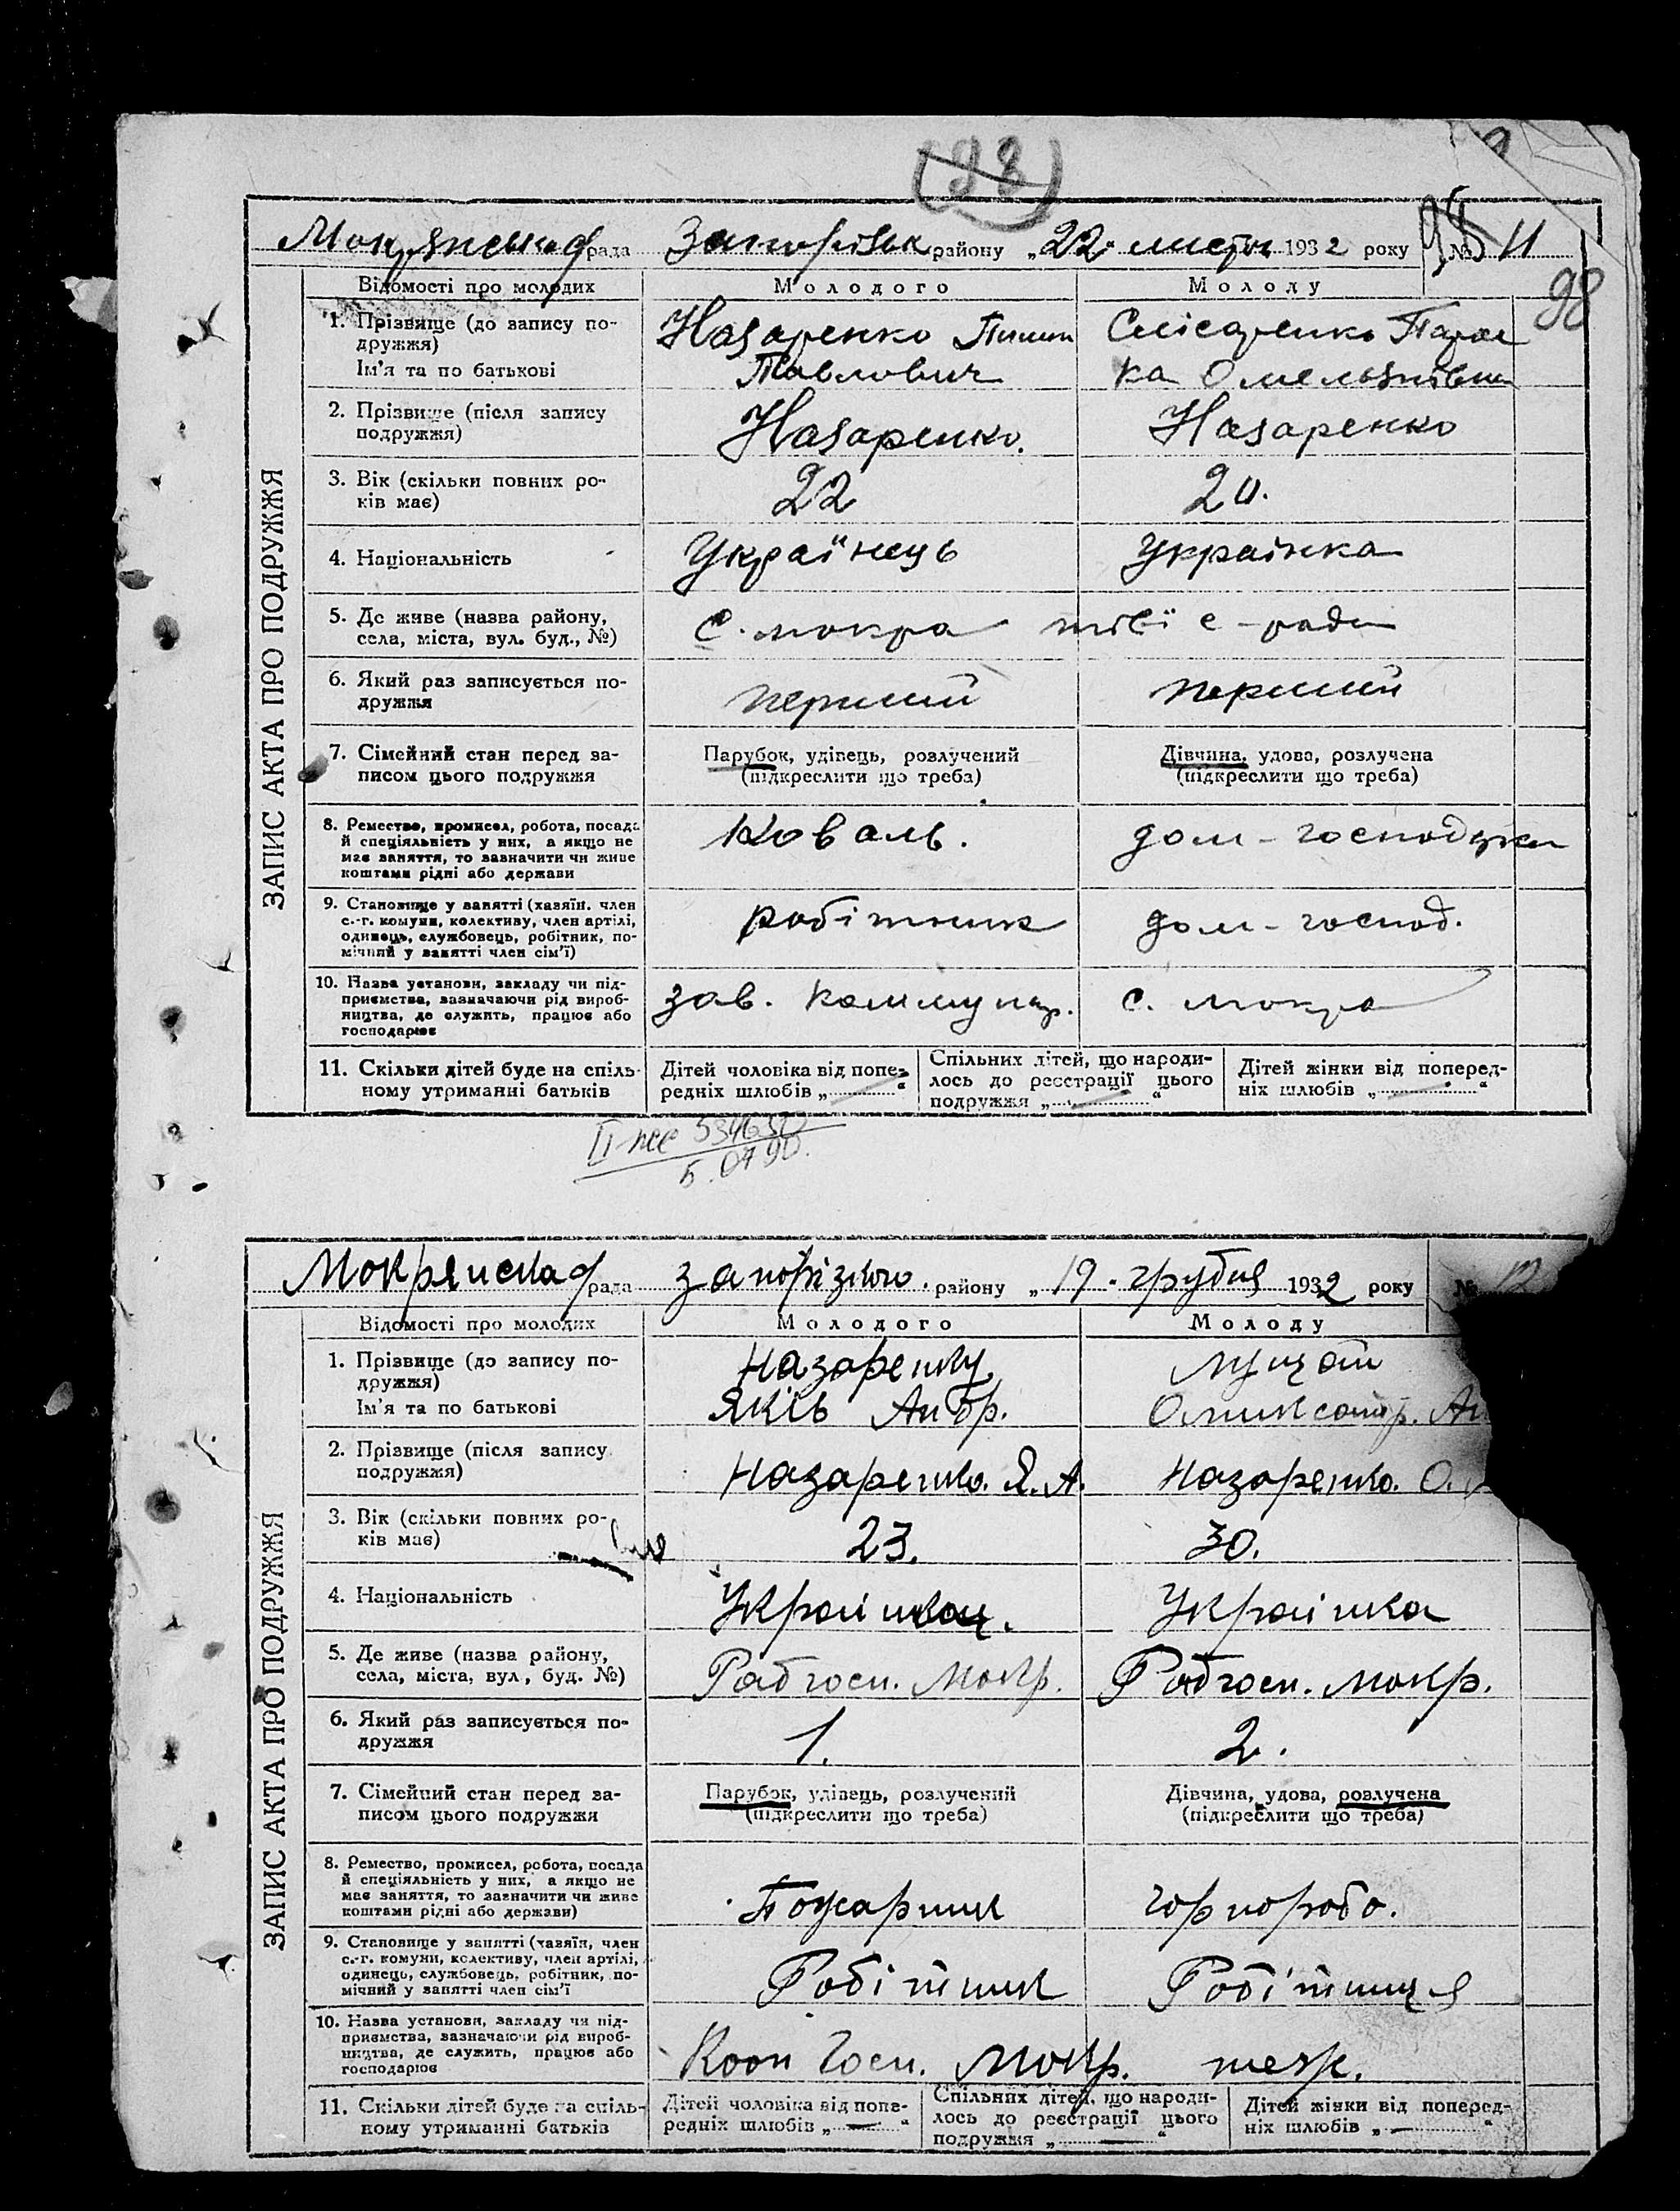 (98)
Мокрянська рада Запорізьк району „22" листоп 1932 року № 11
98
ЗАПИС АКТА ПРО ПОДРУЖЖЯ
Відомості про молодих Молодого Молоду
1. Прізвище (до запису по-
дружжя)
Ім'я та по батькові
Назаренко
Павлович
Слісаренко Парас
ка Омельянівна
2. Прізвище (після запису
подружжя)
Назаренко. Назаренко
3. Вік (скільки повних ро-
ків має)
22 20.
4. Національність Українець Українка
5. Де живе (назва району,
села, міста, вул. буд., №)
с. мокра тієї с-ради
6. Який раз записується по-
дружжя
перший перший
7. Сімейний стан перед за-
писом цього подружжя
Парубок, удівець, розлучений
(підкреслити що треба)
Дівчина, удова, розлучена
(підкреслити що треба)
8. Ремество, промисел, робота, посада
й спеціяльність у них, а якщо не
має заняття, то зазначити чи живе
коштами рідні або держави
Коваль. дом-господарка
9. Становище у занятті (хазяїн, член
с.-г. комуни, колективу, член артілі,
одинець, службовець, робітник, по-
мічний у занятті член сім'ї)
робітник дом-господ.
10. Назва установи, закладу чи під-
приємства, зазначаючи рід вироб-
ництва, де служить, працює або
господарює
зав. Коммунар. с. мокра
11. Скільки дітей буде на спіль-
ному утриманні батьків
Дітей чоловіка від попе-
редніх шлюбів „ — "
Спільних дітей, що народи-
лось до реєстрації цього
подружжя „ — "
Дітей жінки від поперед-
ніх шлюбів „ — "
534630
5.04 90.
Мокрянська рада запорізького району „19. грудня 1932 року № 12
ЗАПИС АКТА ПРО ПОДРУЖЖЯ
Відомості про молодих Молодого Молоду
1. Прізвище (до запису по-
дружжя)
Ім'я та по батькові
Назаренку
Яків Андр.
Луцат
Олександр. Ан
2. Прізвище (після запису
подружжя)
Назаренко. Я. А. Назаренко. О.
3. Вік (скільки повних ро-
ків має)
23. 30.
4. Національність Українец. Українка
5. Де живе (назва району,
села, міста, вул, буд. №)
Радгосп. Мокр. Радгосп. Мокр.
6. Який раз записується по-
дружжя
1. 2.
7. Сімейний стан перед за-
писом цього подружжя
Парубок, удівець, розлучений
(підкреслити що треба)
Дівчина, удова, розлучена
(підкреслити що треба)
8. Ремество, промисел, робота, посада
й спеціяльність у них, а якщо не
має заняття, то зазначити чи живе
коштами рідні або держави)
Пожарник чорноробо.
9. Становище у занятті (хазяїн, член
с.-г. комуни, колективу, член артілі,
одинець, службовець, робітник, по-
мічний у занятті член сім'ї
Робітник Робітниця
10. Назва установи, закладу чи під-
приємства, зазначаючи рід вироб-
ництва, де служить, працює або
господарює
Кооп Госп. Мокр.
11. Скільки дітей буде на спіль-
ному утриманні батьків
Дітей чоловіка від попе-
редніх шлюбів „ — "
Спільних дітей, що народи-
лось до реєстрації цього
подружжя „ — "
Дітей жінки від поперед-
ніх шлюбів „ — "